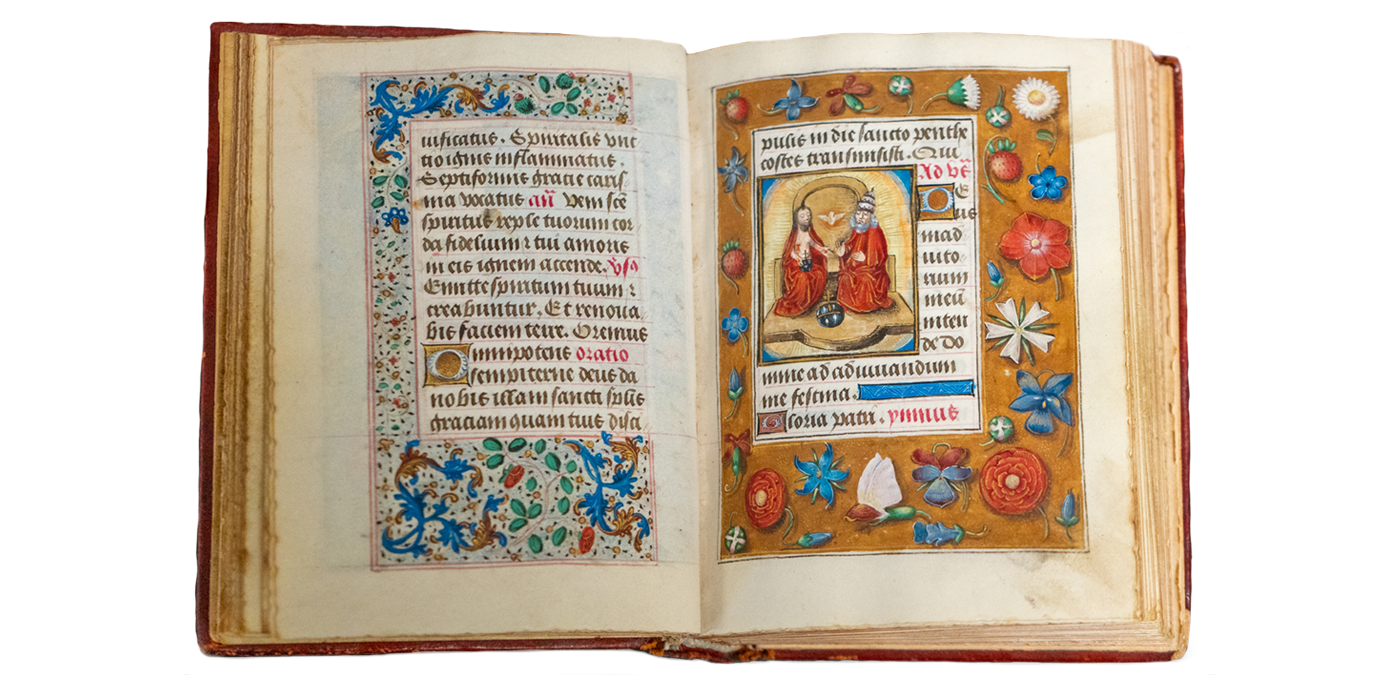 iuificatus . Spiritalis vnc
tio ignis inflammatus .
Septiformis gracie caris
ma vocatus añ Veni scē
spiritus reple tuorum cor
da fidelium ⁊ tui amoris
in eis ignem accende.
Emitte spiritum tuum ⁊
creabuntur . Et renoua
bis faciem terre. Oremus
Omnipotens oratio
sempiterne deus da
nobis illam sancti sp̄us
graciam quam tuis disci
pulis in die sancto penthe
costes transmisisti . Qui
Ad vē
De
us
in ad
iuto
rium
meū
inten
de Do
mine ad adiuuandum
me festina .
Gloria patri . ymnus